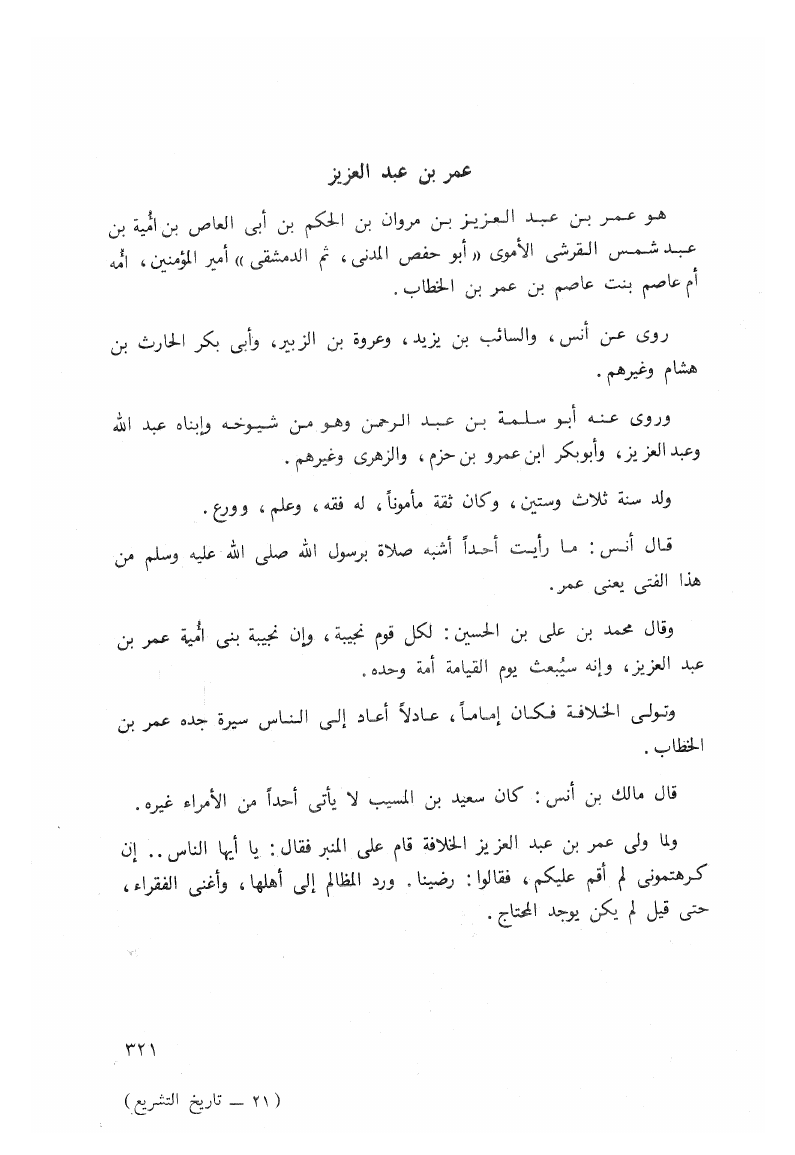 عمر بن عبد العزيز
هو عمر بن عبد العزيز بن مروان بن الحكم بن أبى العاص بن أُمية بن
عبد شمس القرشى الأموى «أبو حفص المدنى، ثم الدمشقى» أمير المؤمنين، أمُه
أم عاصم بنت عاصم بن عمر بن الخطاب.
روى عن أنس، والسائب بن يزيد، وعروة بن الزبير، وأبى بكر الحارث بن
هشام وغيرهم.
وروى عنه أبو سلمة بن عبد الرحمن وهو من شيوخه وإبناه عبد الله
وعبد العزيز، وأبوبكر ابن عمرو بن حزم، والزهرى وغيرهم.
ولد سنة ثلاث وستين، وكان ثقة مأموناً، له فقه، وعلم، وورع.
قال أنس: ما رأيت أحداً أشبه صلاة برسول الله صلى الله عليه وسلم من
هذا الفتى يعنى عمر.
وقال محمد بن على بن الحسين: لكل قوم نجيبة، وإن نجيبة بنى أمُية عمر بن
عبد العزيز، وإنه سيُبعث يوم القيامة أمة وحده.
وتولى الخلافة فكان إماماً، عادلاً أعاد إلى الناس سيرة جده عمر بن
الخطاب.
قال مالك بن أنس: كان سعيد بن المسيب لا يأتى أحداً من الأمراء غيره.
ولما ولى عمر بن عبد العزيز الخلافة قام على المنبر فقال: يا أيها الناس.. إن
كرهتمونى لم أقم عليكم، فقالوا: رضينا. ورد المظالم إلى أهلها، وأغنى الفقراء،
حتى قيل لم يكن يوجد المحتاج.
٣٢١
(٢١ — تاريخ التشريع)